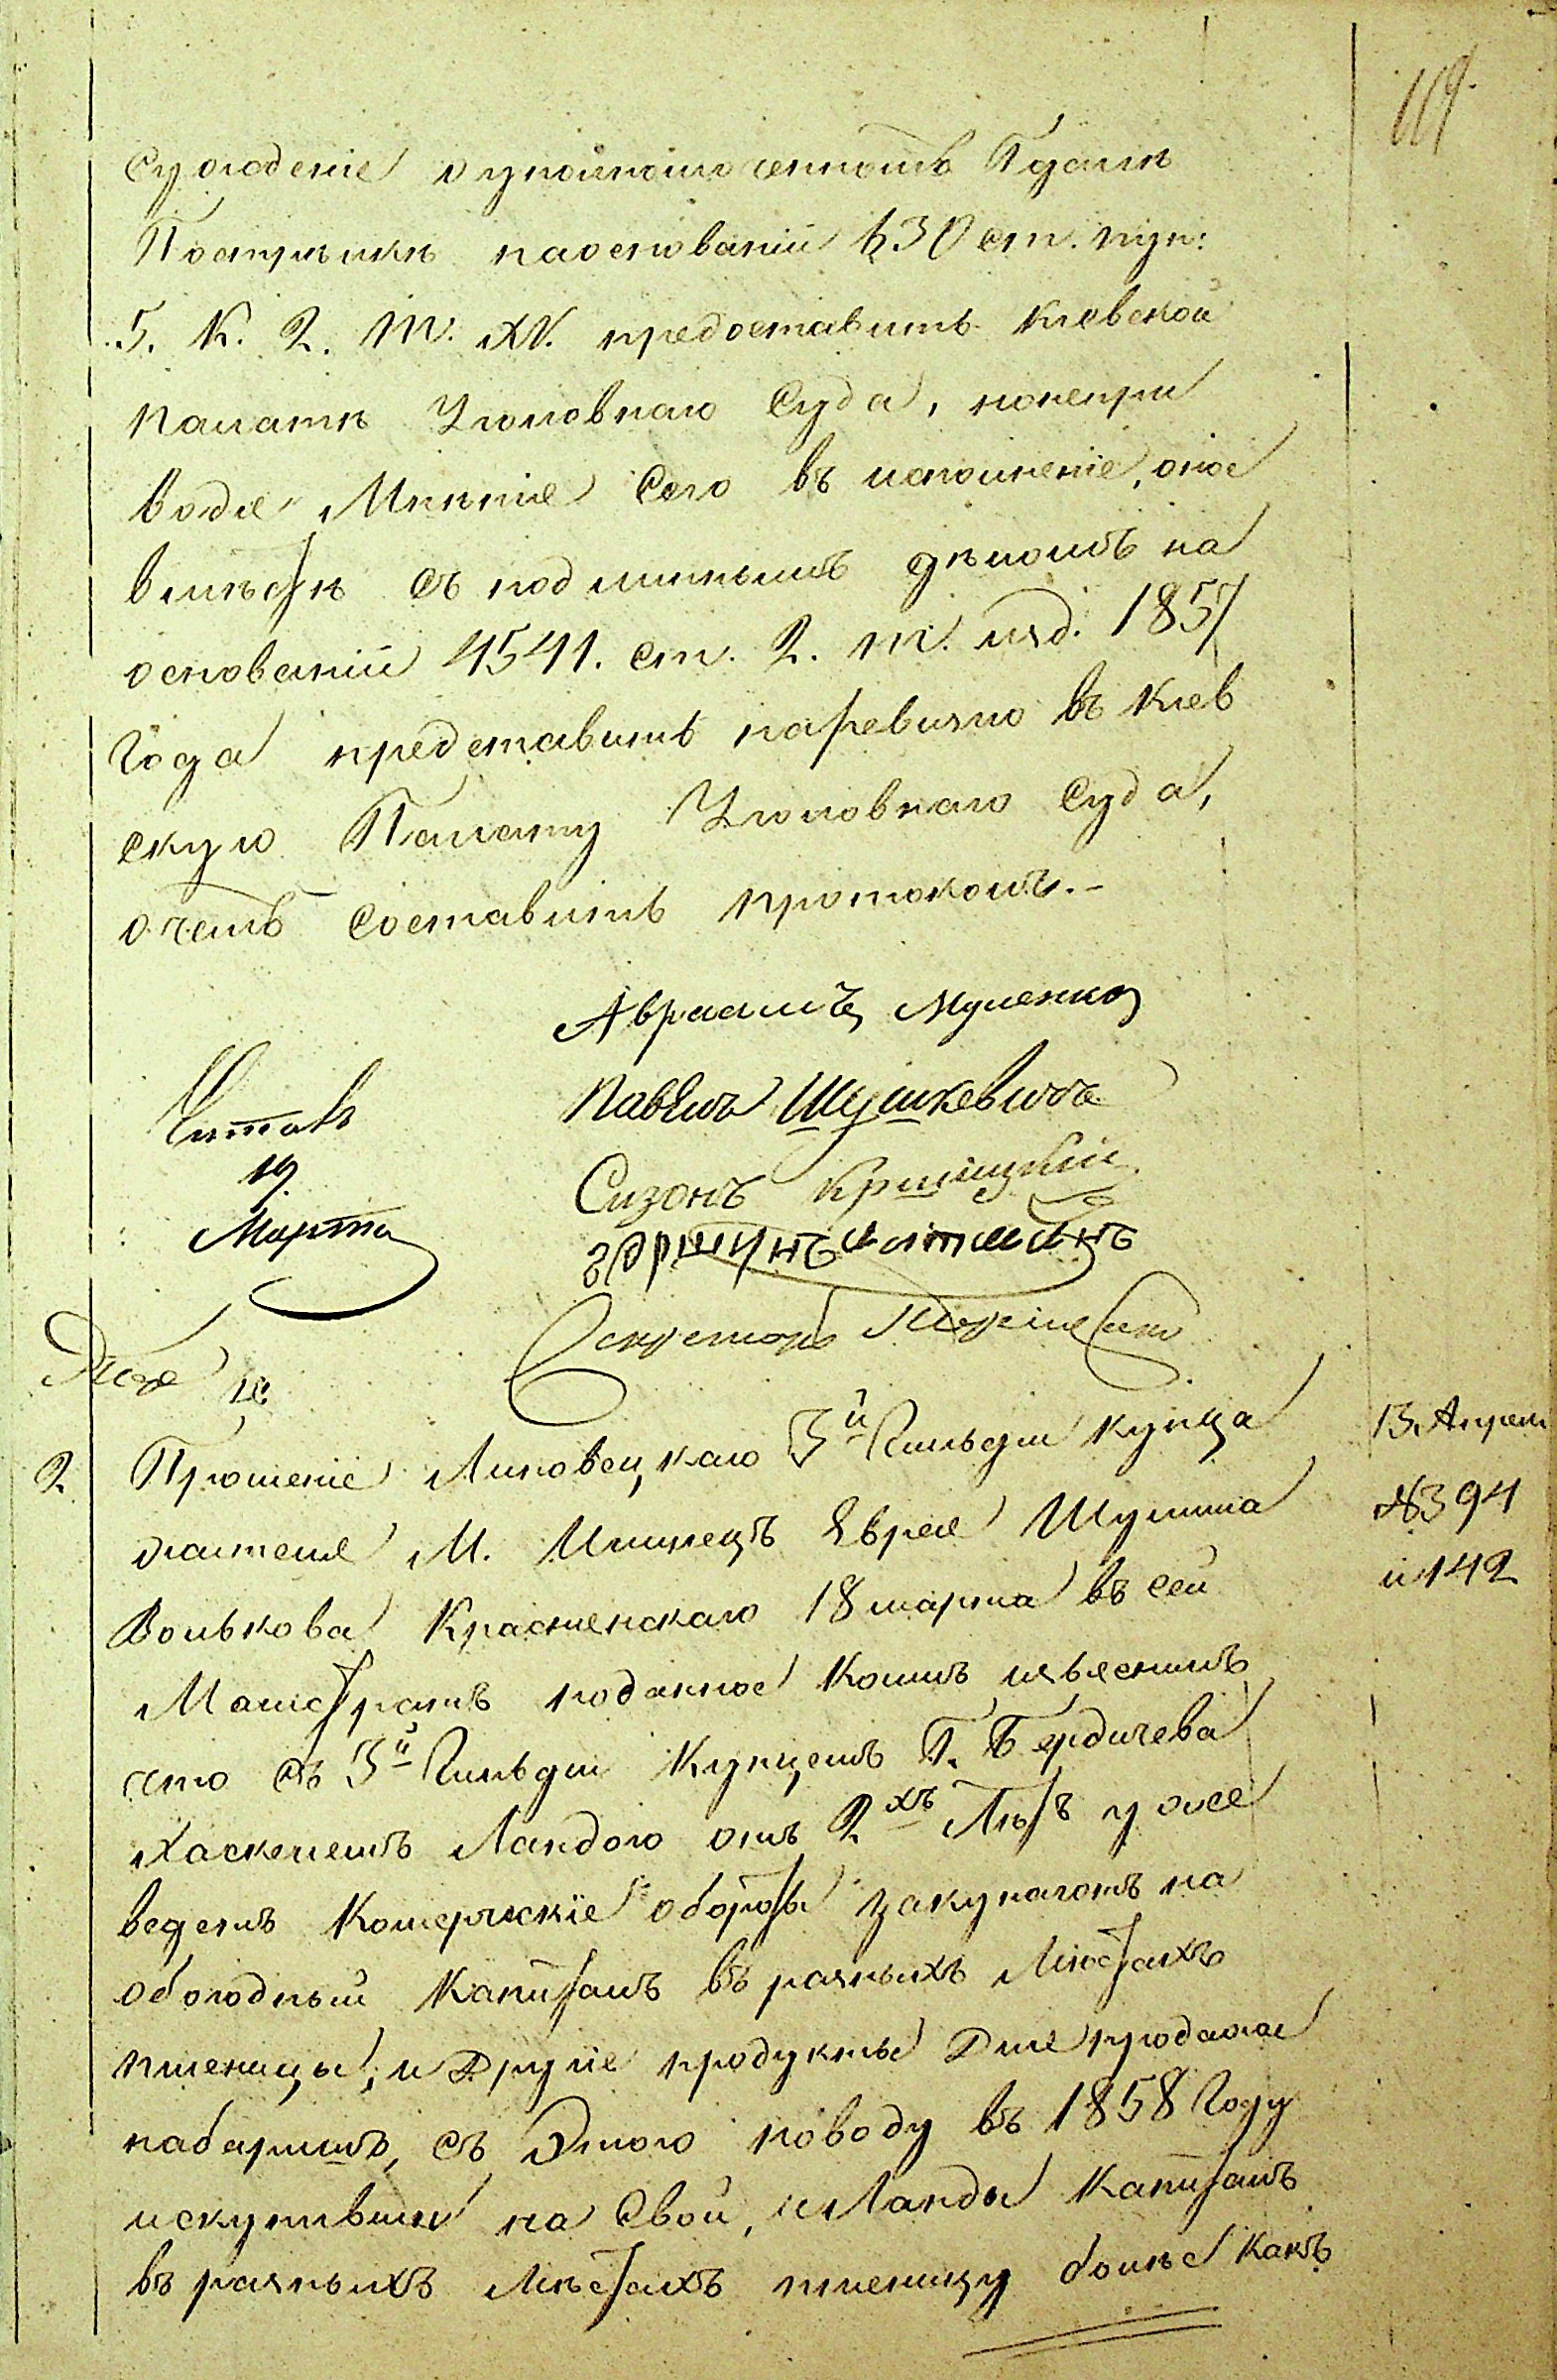 119
Сужденіе о уполномоченномъ Гдали
на основаніи 630 ст. пун:
5. К. 2. Т. XV. предоставить Кіевской
Палатѣ Уголовнаго Суда, но непри
водя Мнѣніе сего въ исполненіе, оное
вмѣстѣ съ подлиннымъ дѣломъ на
основаніи 4541. ст. 2. т. изд. 1857
Года представить на ревизію въ Кіев
скую Палату Уголовнаго Суда,
о чемъ составить протоколъ.-
Авраамъ
Павелъ Шушкевичъ
Читалъ
19
Марта
Сизонъ
Секретарь
2 Прошеніе Липовецкаго 3й Гильдіи купца
13 Апреля
жителя М. Ильинецъ Еврея Шулима
№394
Волькова Красненскаго 18 марта въ сей
и 142
Магистратъ поданное коимъ изъяснилъ
что съ 3й Гильдіи Купцемъ Г. Бердичева
Хаскелемъ Ландою отъ 2хъ Лѣтъ уже
ведетъ Комерческіе обороты закупаютъ на
обоюдный Капиталъ въ разныхъ Мѣстахъ
пшеницы, и Другіе продукты Для продажи
набарышъ, съ Этого поводу въ 1858 Году
искупивши на Свой, и Ланды Капиталъ
въ разныхъ Мѣстахъ пшеницу болѣе какъ